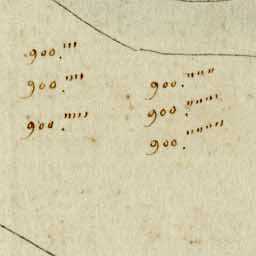 900.'''
900.''''
900.'''''
900.''''
900.'''''
900.''''''